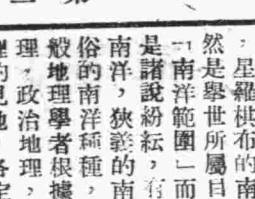 ，星羅棋布的南
然是舉世所屬目
「南洋範圍」而
是諸說紛紜，有
南洋，狹義的南
俗的南洋種種，
般地理學者根據
理，政治地理，
的見地，各定